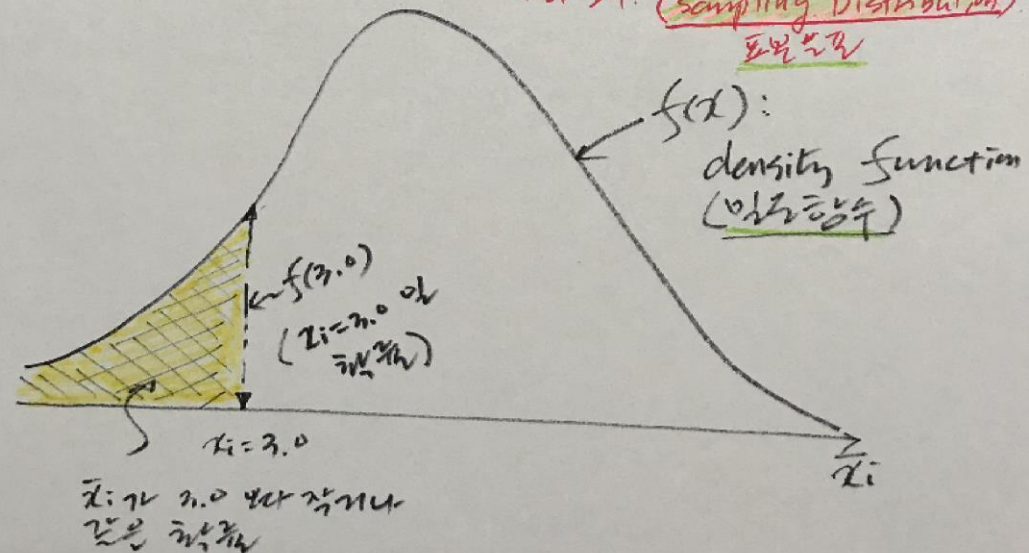 (Sampling Distribution)
표본분포
f(x):
density function
(밀도함수)
f(3.0)
(xi=3.0 일
확률)
xi=3.0
x̄i
x̄i가 3.0 보다 작거나
같은 확률